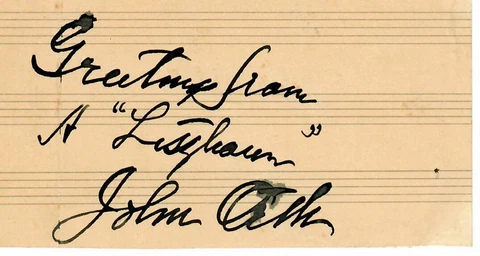 Greetings from
A
John Orth